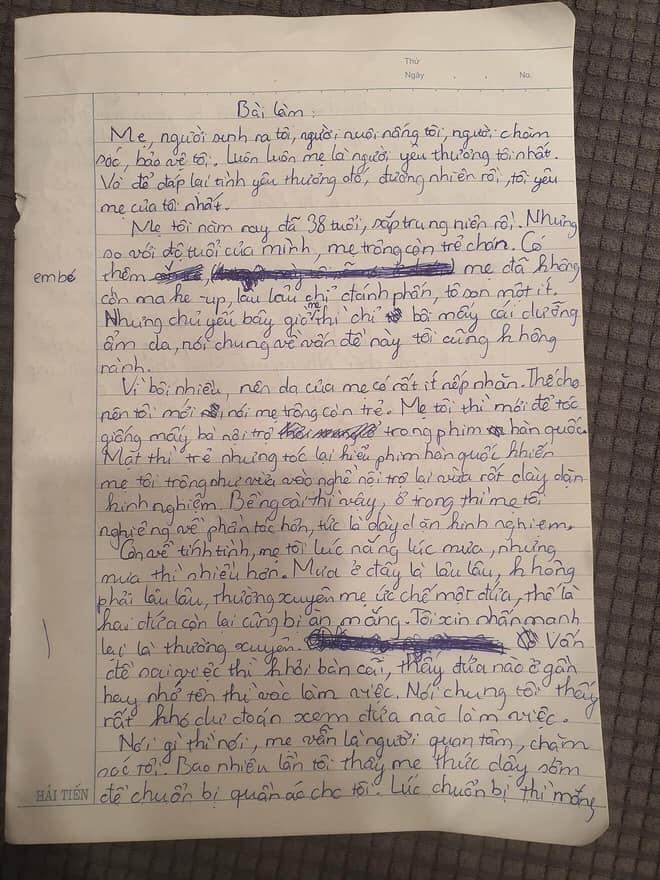 Thứ
Ngày . . No.
Bài làm:
Mẹ, người sinh ra tôi, người nuôi nấng tôi, người chăm
sóc, bảo vệ tôi. Luôn luôn mẹ là người yêu thương tôi nhất.
Và để đáp lại tình yêu thương đó, đương nhiên rồi, tôi yêu
mẹ của tôi nhất.
Mẹ tôi năm nay đã 38 tuổi, sắp trung niên rồi. Nhưng
so với độ tuổi của mình, mẹ trông còn trẻ chán. Có
em bé
thêm mẹ đã không
còn make-up, lâu lâu chỉ đánh phấn, tô son một ít.
Nhưng chủ yếu bây giờ mẹ thì chỉ bôi mấy cái dưỡng
ẩm da, nói chung về vấn đề này tôi cũng không
rành.
Vì bôi nhiều, nên da của mẹ có rất ít nếp nhăn. Thế cho
nên tôi mới nói mẹ trông còn trẻ. Mẹ tôi thì mới để tóc
giống mấy bà nội trợ trong phim hàn quốc.
Mặt thì trẻ nhưng tóc lại kiểu phim hàn quốc khiến
mẹ tôi trông như vừa vào nghề nội trợ lại vừa rất dày dặn
kinh nghiệm. Bề ngoài thì vậy, ở trong thì mẹ tôi
nghiêng về phần tóc hơn, tức là dày dặn kinh nghiệm.
Còn về tính tình, mẹ tôi lúc nắng lúc mưa, nhưng
mưa thì nhiều hơn. Mưa ở đây là lâu lâu, không
phải lâu lâu, thường xuyên mẹ ức chế một đứa, thế là
hai đứa còn lại cũng bị ăn mắng. Tôi xin nhấn mạnh
lại là thường xuyên. Vấn
đề sai việc thì khỏi bàn cãi, thấy đứa nào ở gần
hay nhớ tên thì vác làm việc. Nói chung tôi thấy
rất khó dự đoán xem đứa nào làm việc.
Nói gì thì nói, mẹ vẫn là người quan tâm, chăm
sóc tôi. Bao nhiêu lần tôi thấy mẹ thức dậy sớm
HẢI TIẾN để chuẩn bị quần áo cho tôi. Lúc chuẩn bị thì mắng